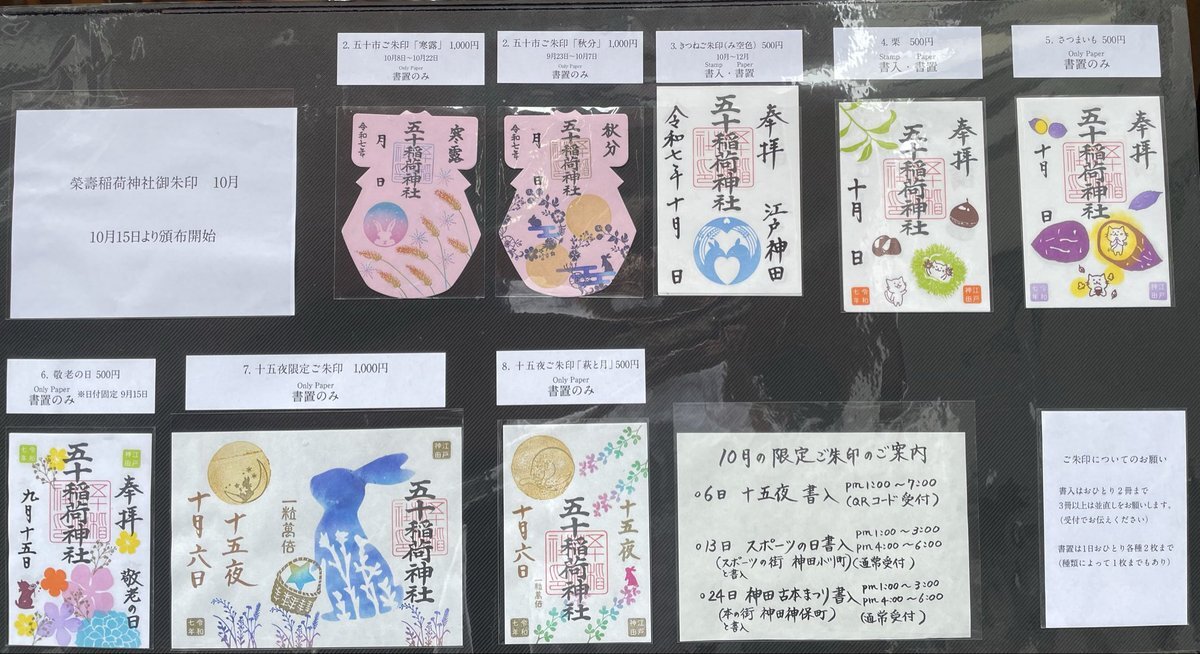 榮壽稲荷神社御朱印　10月
10月15日より頒布開始
2. 五十市ご朱印「寒露」 1,000円
10月8日〜10月22日
Only Paper
書置のみ
寒露
五十稲荷神社
令和七年
月
日
2. 五十市ご朱印「秋分」 1,000円
9月23日〜10月7日
Only Paper
書置のみ
秋分
五十稲荷神社
令和七年
月
日
3. きつねご朱印(み空色) 500円
10月〜12月
Stamp Paper
書入・書置
奉拝
江戸神田
五十稲荷神社
令和七年 十月 日
4. 栗 500円
Stamp Paper
書入・書置
奉拝
五十稲荷神社
十月 日
江戸神田
令和七年
5. さつまいも 500円
Only Paper
書置のみ
奉拝
五十稲荷神社
十月 日
江戸神田
令和七年
6. 敬老の日 500円
Only Paper
書置のみ ※日付固定 9月15日
奉拝
敬老の日
五十稲荷神社
九月十五日
江戸神田
令和七年
7. 十五夜限定ご朱印　1,000円
Only Paper
書置のみ
江戸神田
五十稲荷神社
一粒萬倍
十五夜
十月六日
令和七年
8. 十五夜ご朱印「萩と月」500円
Only Paper
書置のみ
十五夜
五十稲荷神社
十月六日
一粒萬倍
江戸神田
令和七年
10月の限定ご朱印のご案内
○6日 十五夜 書入 pm1:00〜7:00
(QRコード受付)
○13日 スポーツの日書入 pm1:00〜3:00
pm4:00〜6:00
(スポーツの街 神田小川町)(通常受付)
と書入
○24日 神田古本まつり書入 pm1:00〜3:00
pm4:00〜6:00
(本の街 神田神保町) (通常受付)
と書入
ご朱印についてのお願い
書入はおひとり２冊まで
3冊以上は並直しをお願いします。
(受付でお伝えください)
書置は1日おひとり各種２枚まで
(種類によって１枚までもあり)